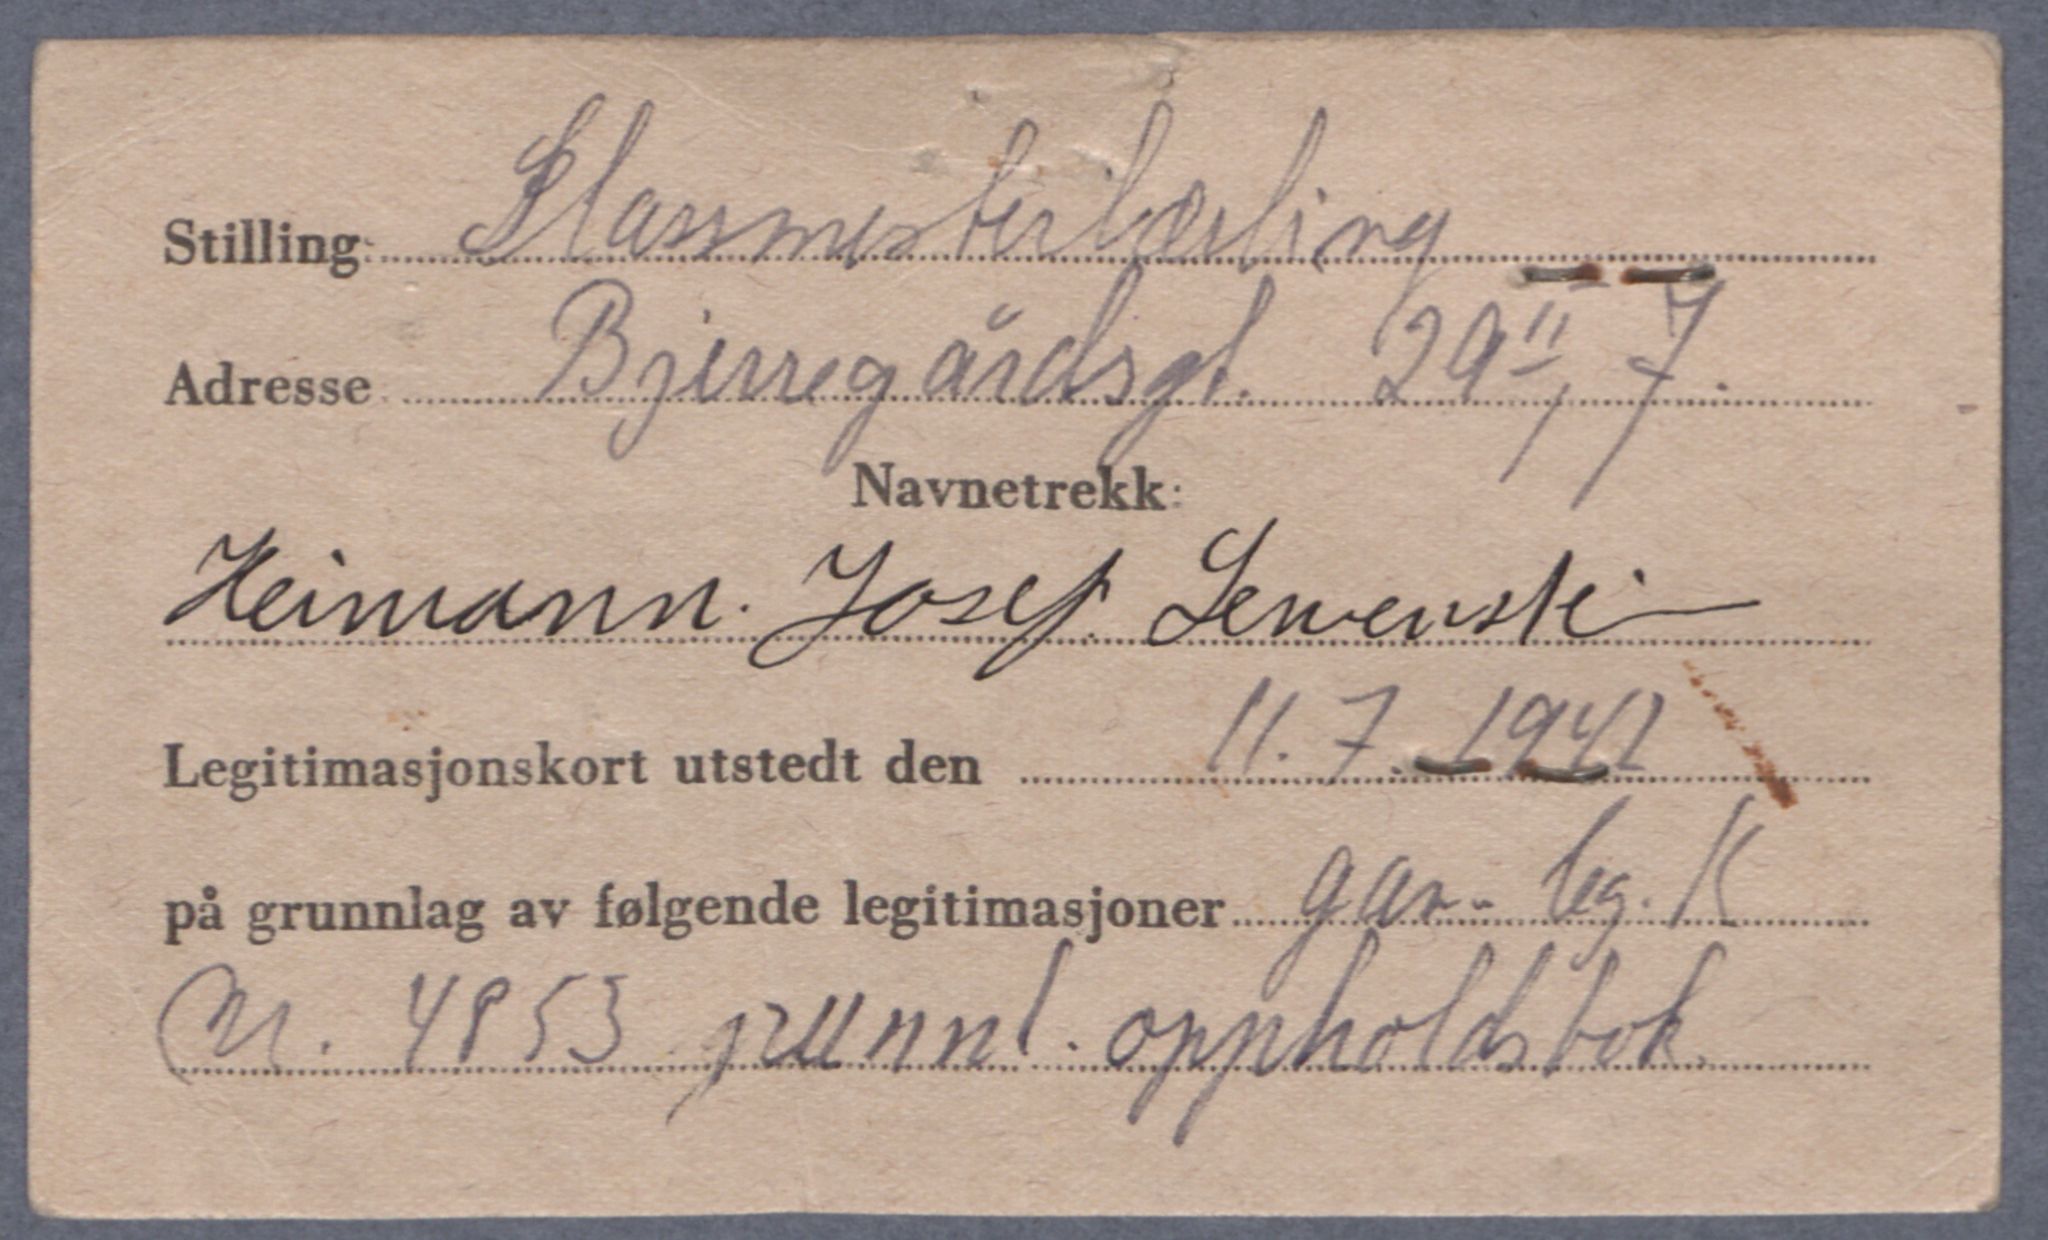 Stilling: Glassmesterlærling
Adresse Bjerregårdsgt. 29 II, 7.
Navnetrekk:
Heimann. Josef. Lewenski
Legitimasjonskort utstedt den 11.7.1941
på grunnlag av følgende legitimasjoner gar. leg. K
Nr. 4853 grunnl. oppholdsbok.